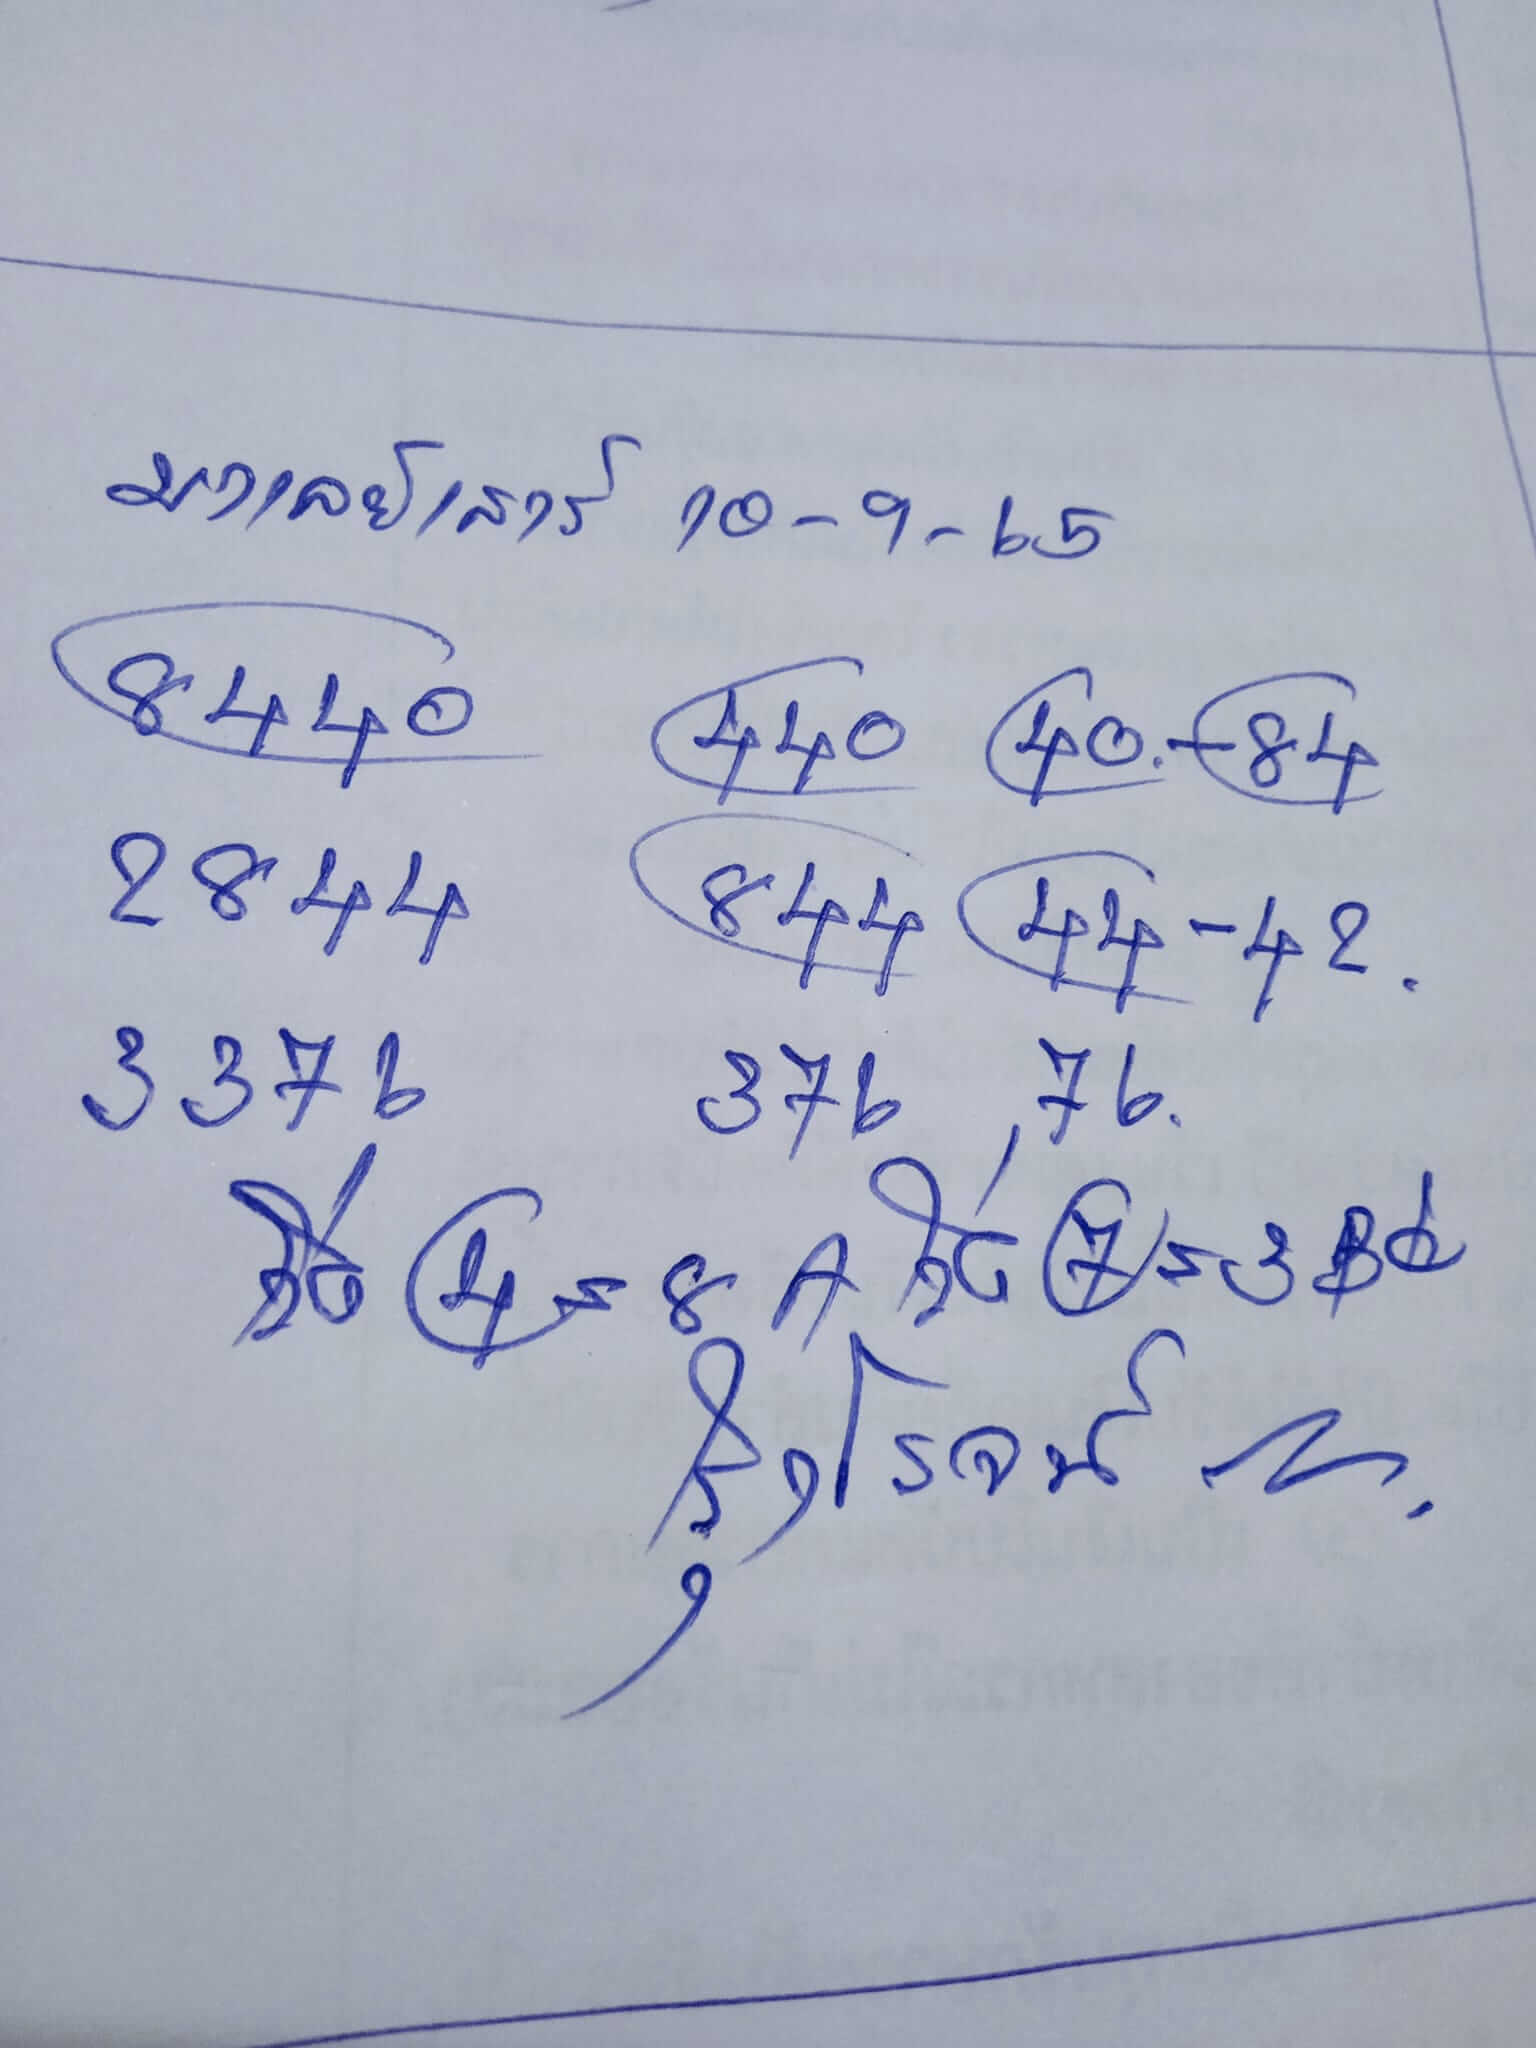 มาเลย์เสาร์ 10-9-65
8440 440 40.-84
2844 844 44-42.
3376 376 76.
4=8 7=3
รุ่งโรจน์